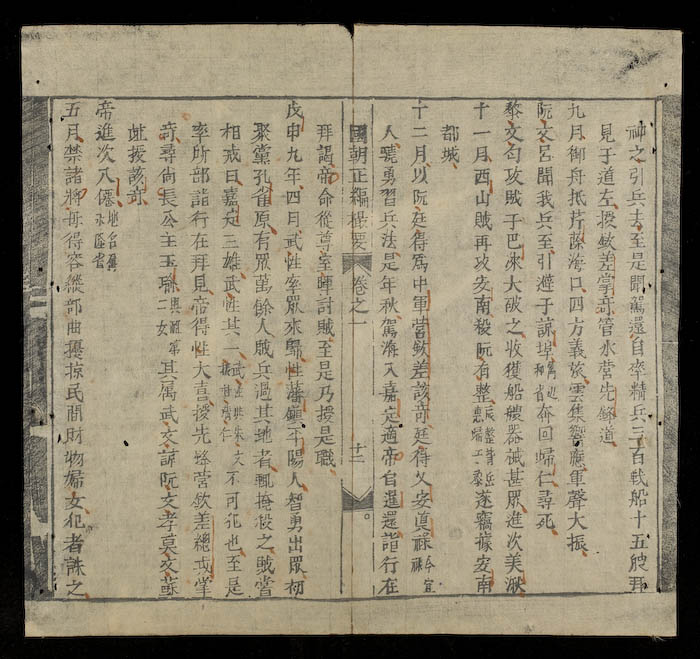 神之引兵去至是聞駕還自率精兵三百戰船十五艘拜
見于道左授欽差掌奇管水營先鋒道
九月御舟抵芹蒢海口四方義旅雲集響應軍聲大振
阮文呂聞我兵至引避于諒埠奔回歸仁尋死
黎文勾攻賊于巴淶大破之收獲船艘器械甚眾進次美湫
十一月西山賊再攻安南殺阮有整遂竊據安南
都城
十二月以阮廷得為中軍當欽差該奇廷得父安真祿今宜祿
人驍勇習兵法是年秋駕海入嘉定適帝自暹還詣行在
國朝正編撮要 卷之一 十二
拜謁帝命從尊室暉討賊至是乃授是職
戊申九年四月武性率眾來歸性藩鎮平陽人智勇出眾初
聚黨孔雀原有眾萬餘人賊兵過其地者輒掩殺之賊當
相戒曰嘉定三雄武性其一不可犯也至是
率所部詣行在拜見帝得性大喜授先鋒營欽差總戎掌
奇尋尚長公主玉璩興祖第二女其屬武文諒阮文孝莫文蘇
並授該奇
帝進次八僊地名屬永隆省
五月禁諸將毋得容縱部曲擾掠民間財物婦女犯者誅之